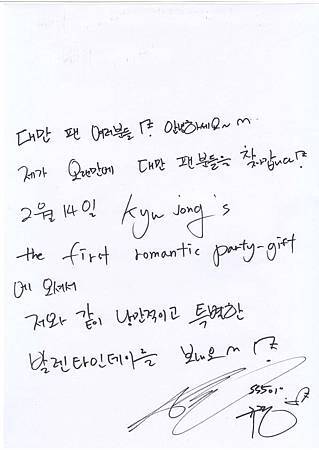 대만 팬 여러분들!? 안녕하세요~ ^^
제가 오랜만에 대만 팬분들을 찾아갑니다!?
2월 14일 Kyu jong's
the first romantic party-gift
에 오셔서
저와 같이 낭만적이고 특별한
발렌타인데이를 보내요 ^^ !?
SS501
규종